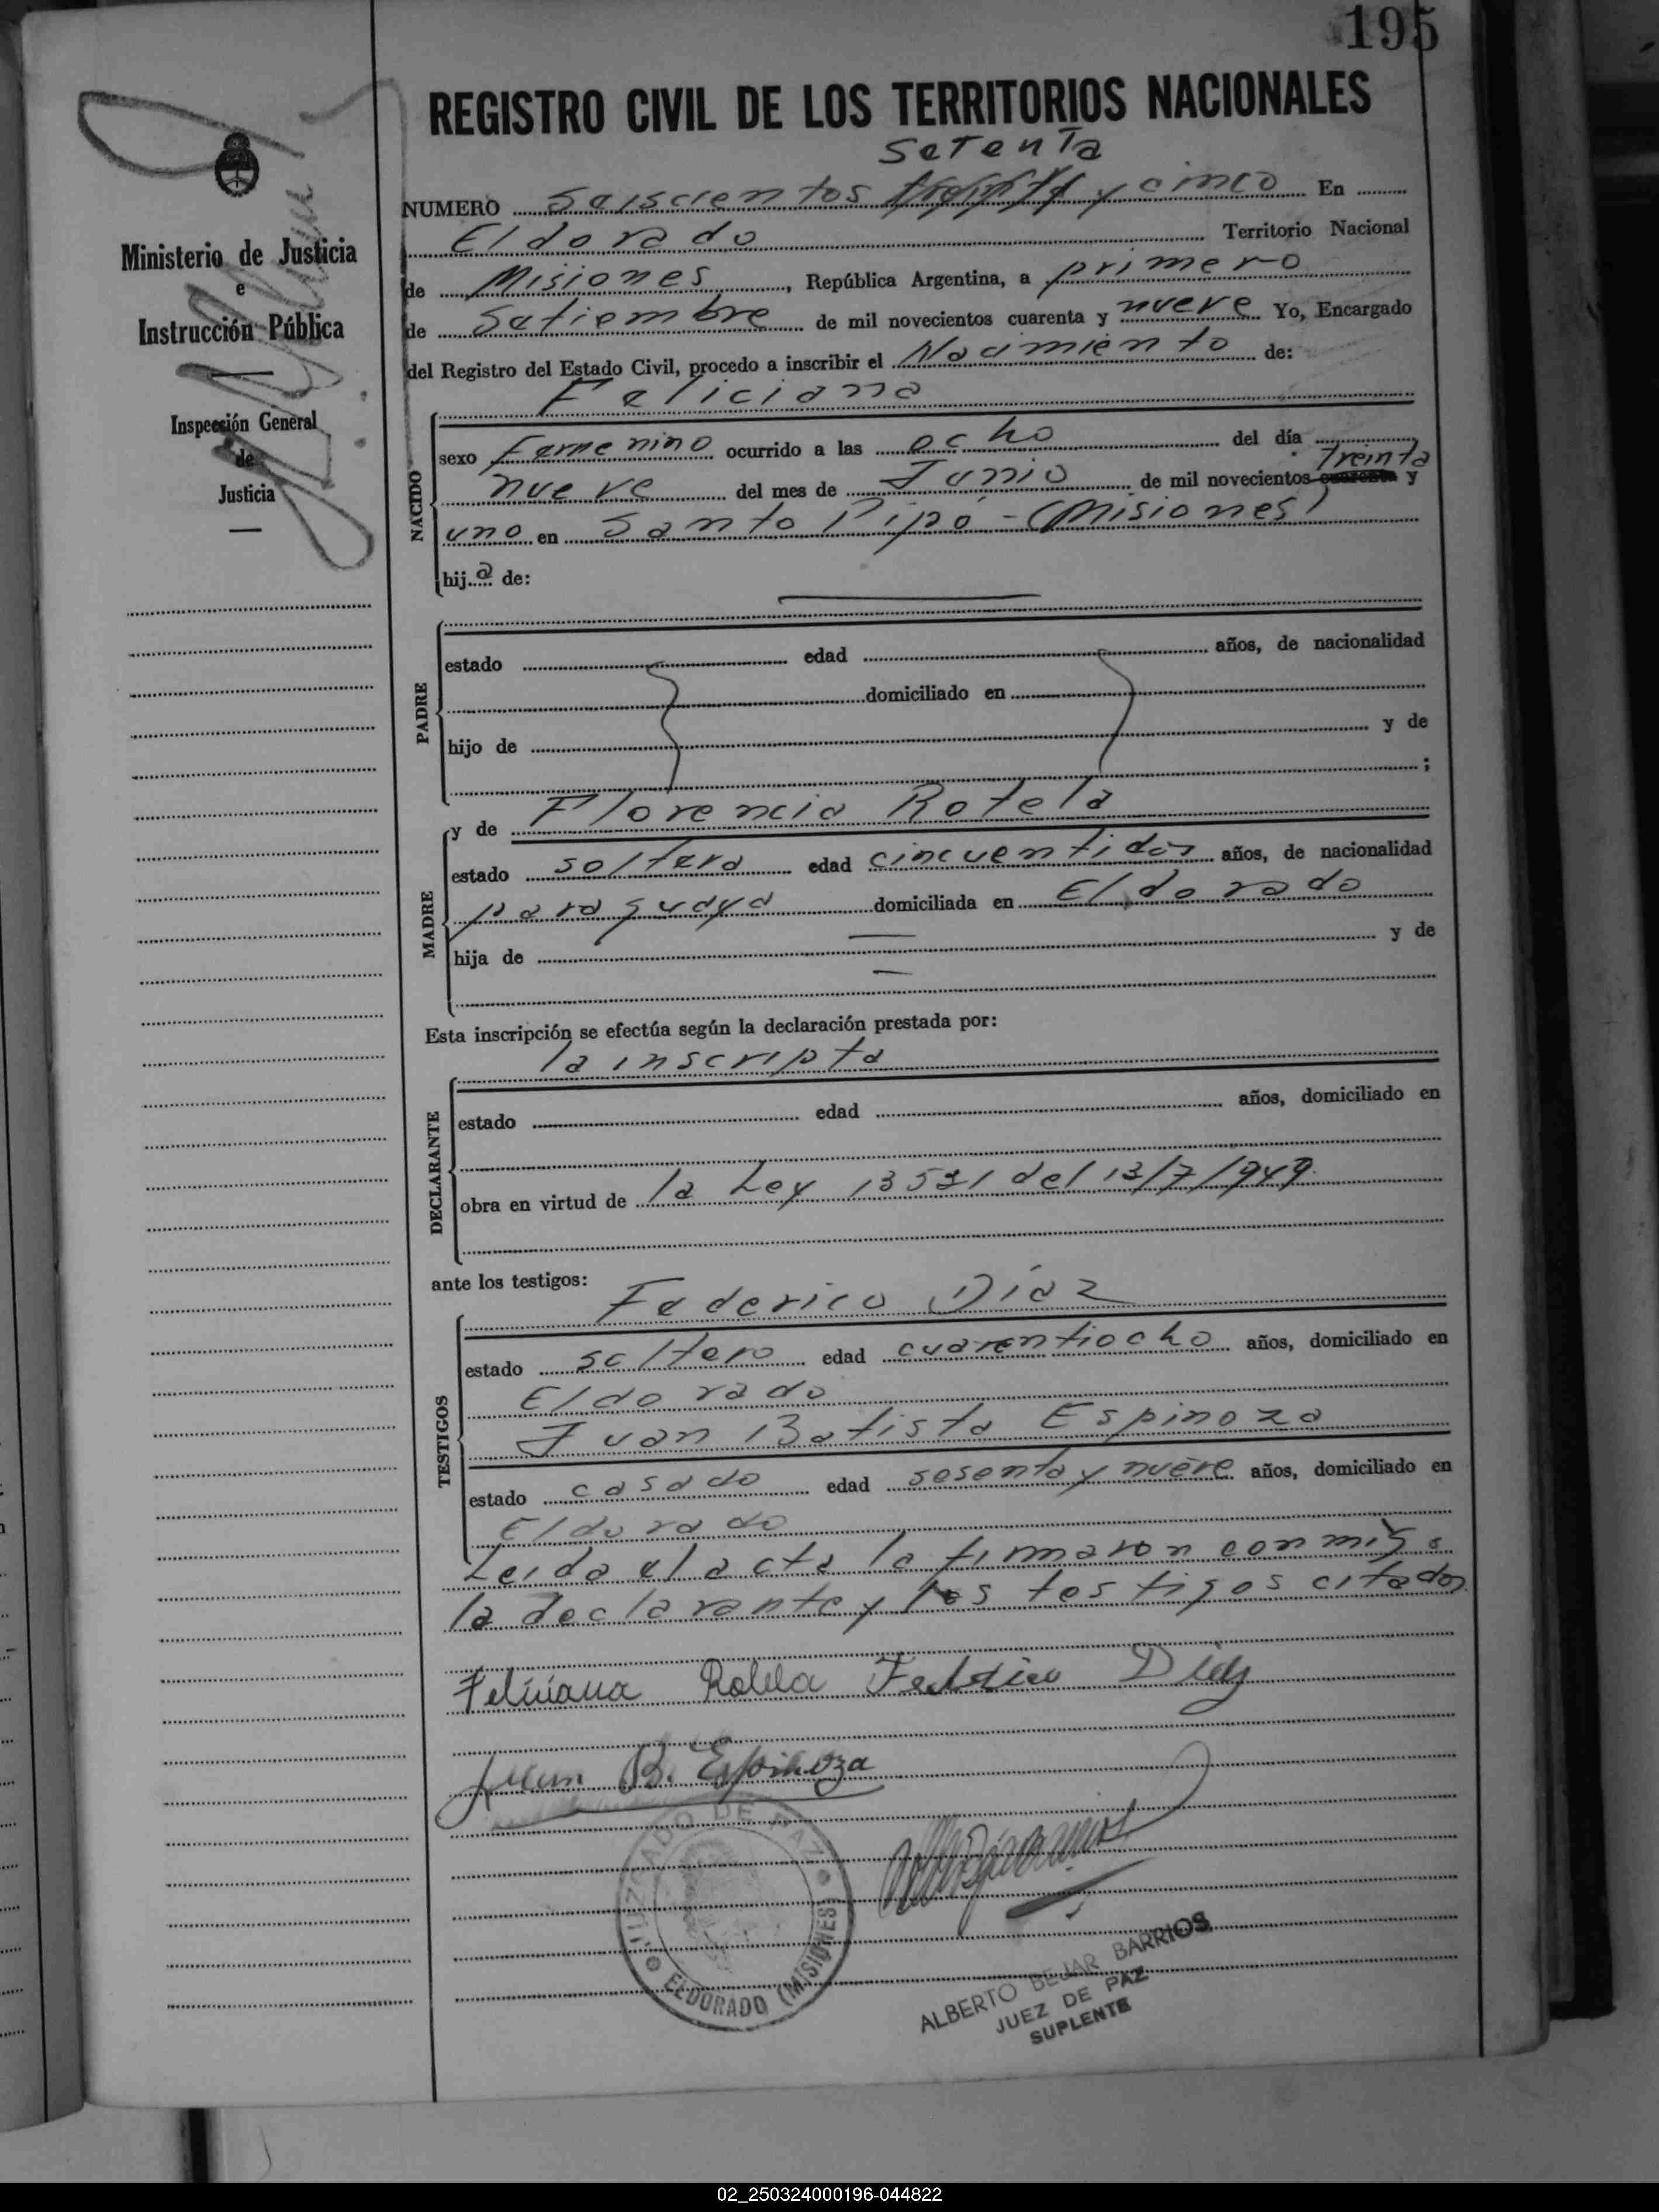 195
REGISTRO CIVIL DE LOS TERRITORIOS NACIONALES
setenta
NUMERO Seiscientos treinta y cinco En
Eldorado Territorio Nacional
de Misiones, República Argentina, a primero
de Setiembre de mil novecientos cuarenta y nueve Yo, Encargado
del Registro del Estado Civil, procedo a inscribir el Nacimiento de:
Ministerio de Justicia
e
Instrucción Pública
Inspección General
de
Justicia
NACIDO
Feliciana
sexo Femenino ocurrido a las ocho del día
treinta
nueve del mes de Junio de mil novecientos cuarenta y
uno en Santo Pipó - (Misiones)
hija de:
PADRE
estado edad años, de nacionalidad
domiciliado en
hijo de y de
;
MADRE
y de Florencia Rotela
estado soltera edad cincuentidos años, de nacionalidad
paraguaya domiciliada en Eldorado
hija de — y de
—
Esta inscripción se efectúa según la declaración prestada por:
la inscripta
DECLARANTE
estado edad años, domiciliado en
obra en virtud de la Ley 13521 del 13/7/949.
ante los testigos:
TESTIGOS
Federico Díaz
estado soltero edad cuarentiocho años, domiciliado en
Eldorado
Juan Batista Espinoza
estado casado edad sesenta y nueve años, domiciliado en
Eldorado
Leida el acta la firmaron conmigo
la declarante y los testigos citados
Feliciana Rotela Federico Diaz
Juan B. Espinoza
JUZGADO DE PAZ
ELDORADO (MISIONES)
ALBERTO BEJAR BARRIOS
JUEZ DE PAZ
SUPLENTE
02_250324000196-044822